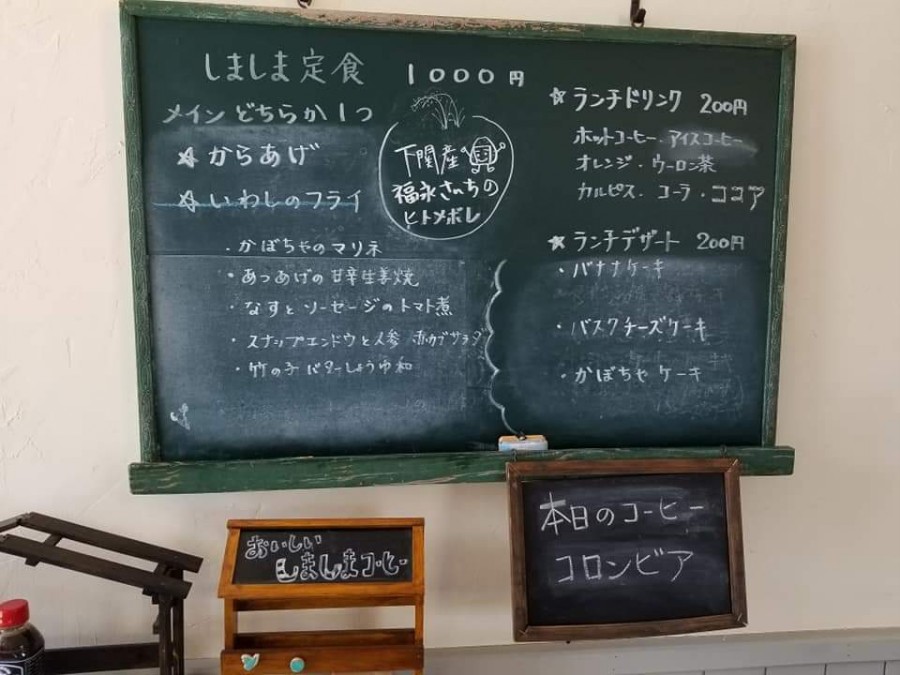 しましま定食 1000円
メインどちらか1つ
☆からあげ
☆いわしのフライ
・かぼちゃのマリネ
・あつあげの甘辛生姜焼
・なすとソーセージのトマト煮
・スナップエンドウと人参 サラダ
・竹の子バターしょうゆ和
下関産
福永さんちの
ヒトメボレ
☆ランチドリンク 200円
ホットコーヒー・アイスコーヒー
オレンジ・ウーロン茶
カルピス・コーラ・ココア
★ランチデザート 200円
・バナナケーキ
・バスクチーズケーキ
・かぼちゃケーキ
おいしい
しましまコーヒー
本日のコーヒー
コロンビア